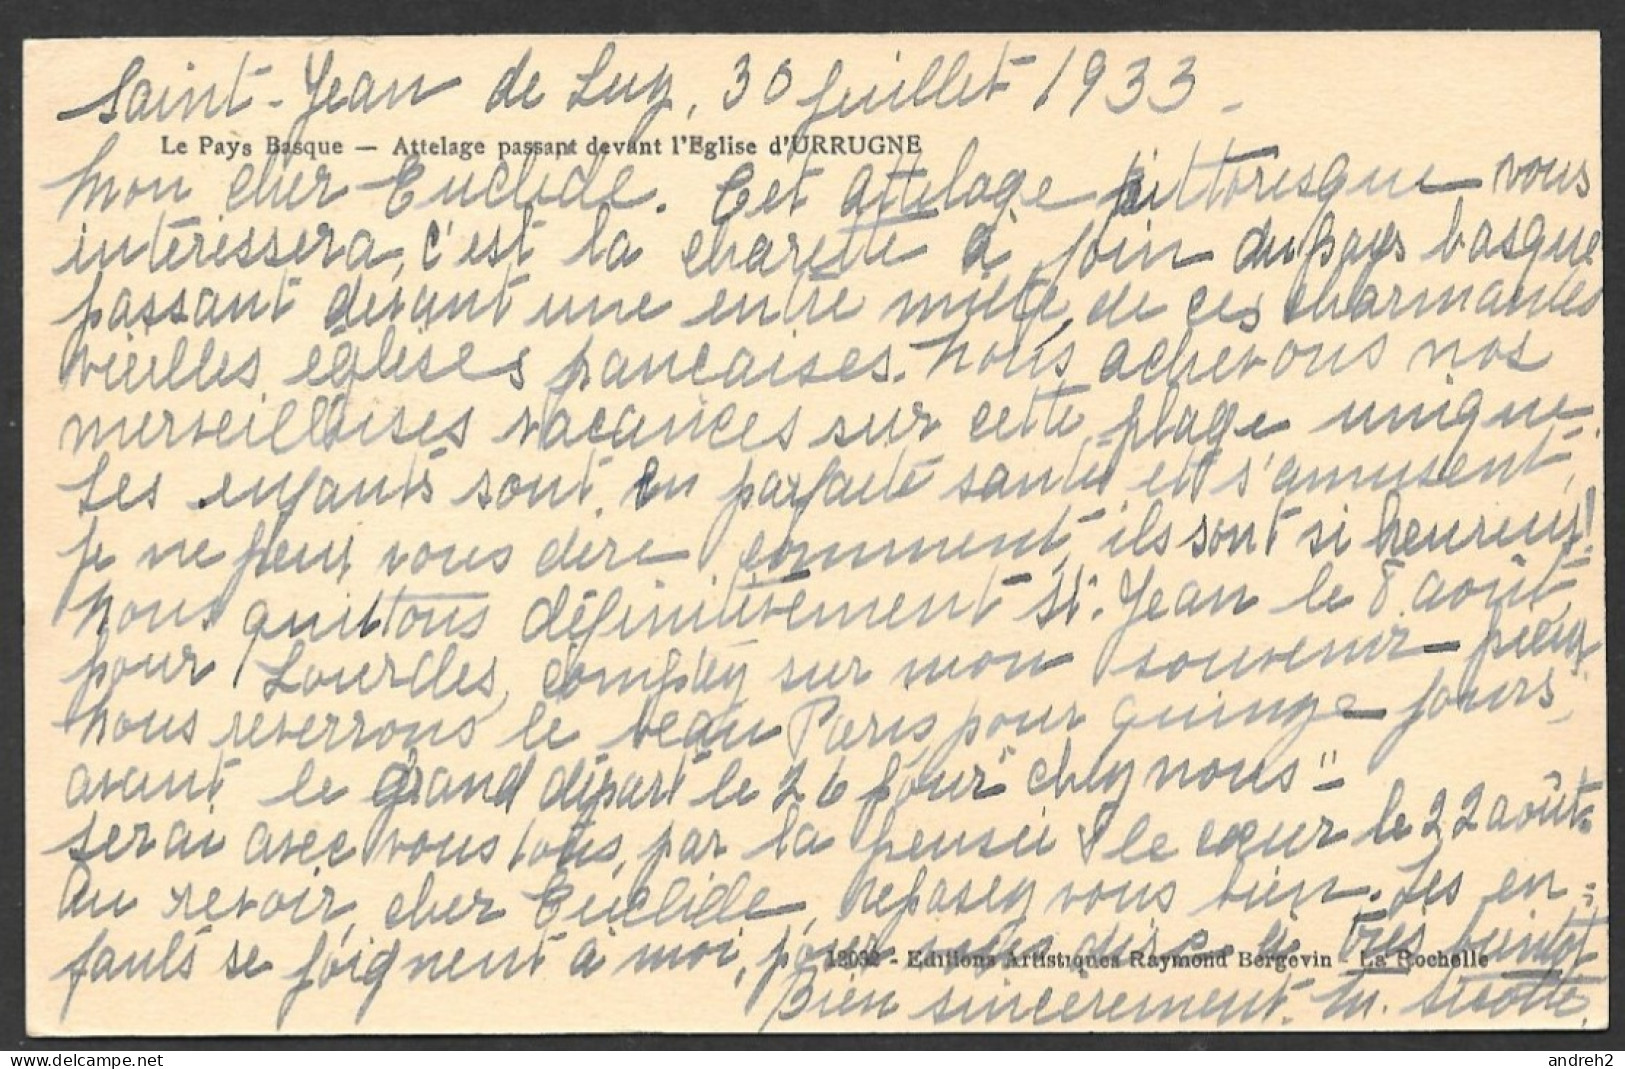 Saint-Jean de Luz, 30 juillet 1933 -
Le Pays Basque — Attelage passant devant l'Eglise d'URRUGNE
Mon cher Euclide. Cet attelage pittoresque vous
intéressera, c'est la charette à foin du pays basque
passant devant une entre mille, de ces charmantes
vieilles églises françaises. Nous achevons nos
merveilleuses vacances sur cette plage unique.
Les enfants sont en parfaite santé et s'amusent,
je ne peux vous dire comment, ils sont si heureux!
Nous quittons définitivement St. Jean le 8 août,
pour Lourdes, comptez sur mon souvenir pieux,
nous reverrons le beau Paris, pour quinze jours,
avant le grand départ le 26 pour "chez nous"
serai avec vous tous, par la pensée & le cœur le 22 août.
Au revoir, cher Euclide, reposez vous bien. Les en-
fants se joignent à moi, pour vous dire à très bientôt
12032 - Editions Artistiques Raymond Bergevin - La Rochelle
Bien sincèrement. M. Sicotte.
andreh2